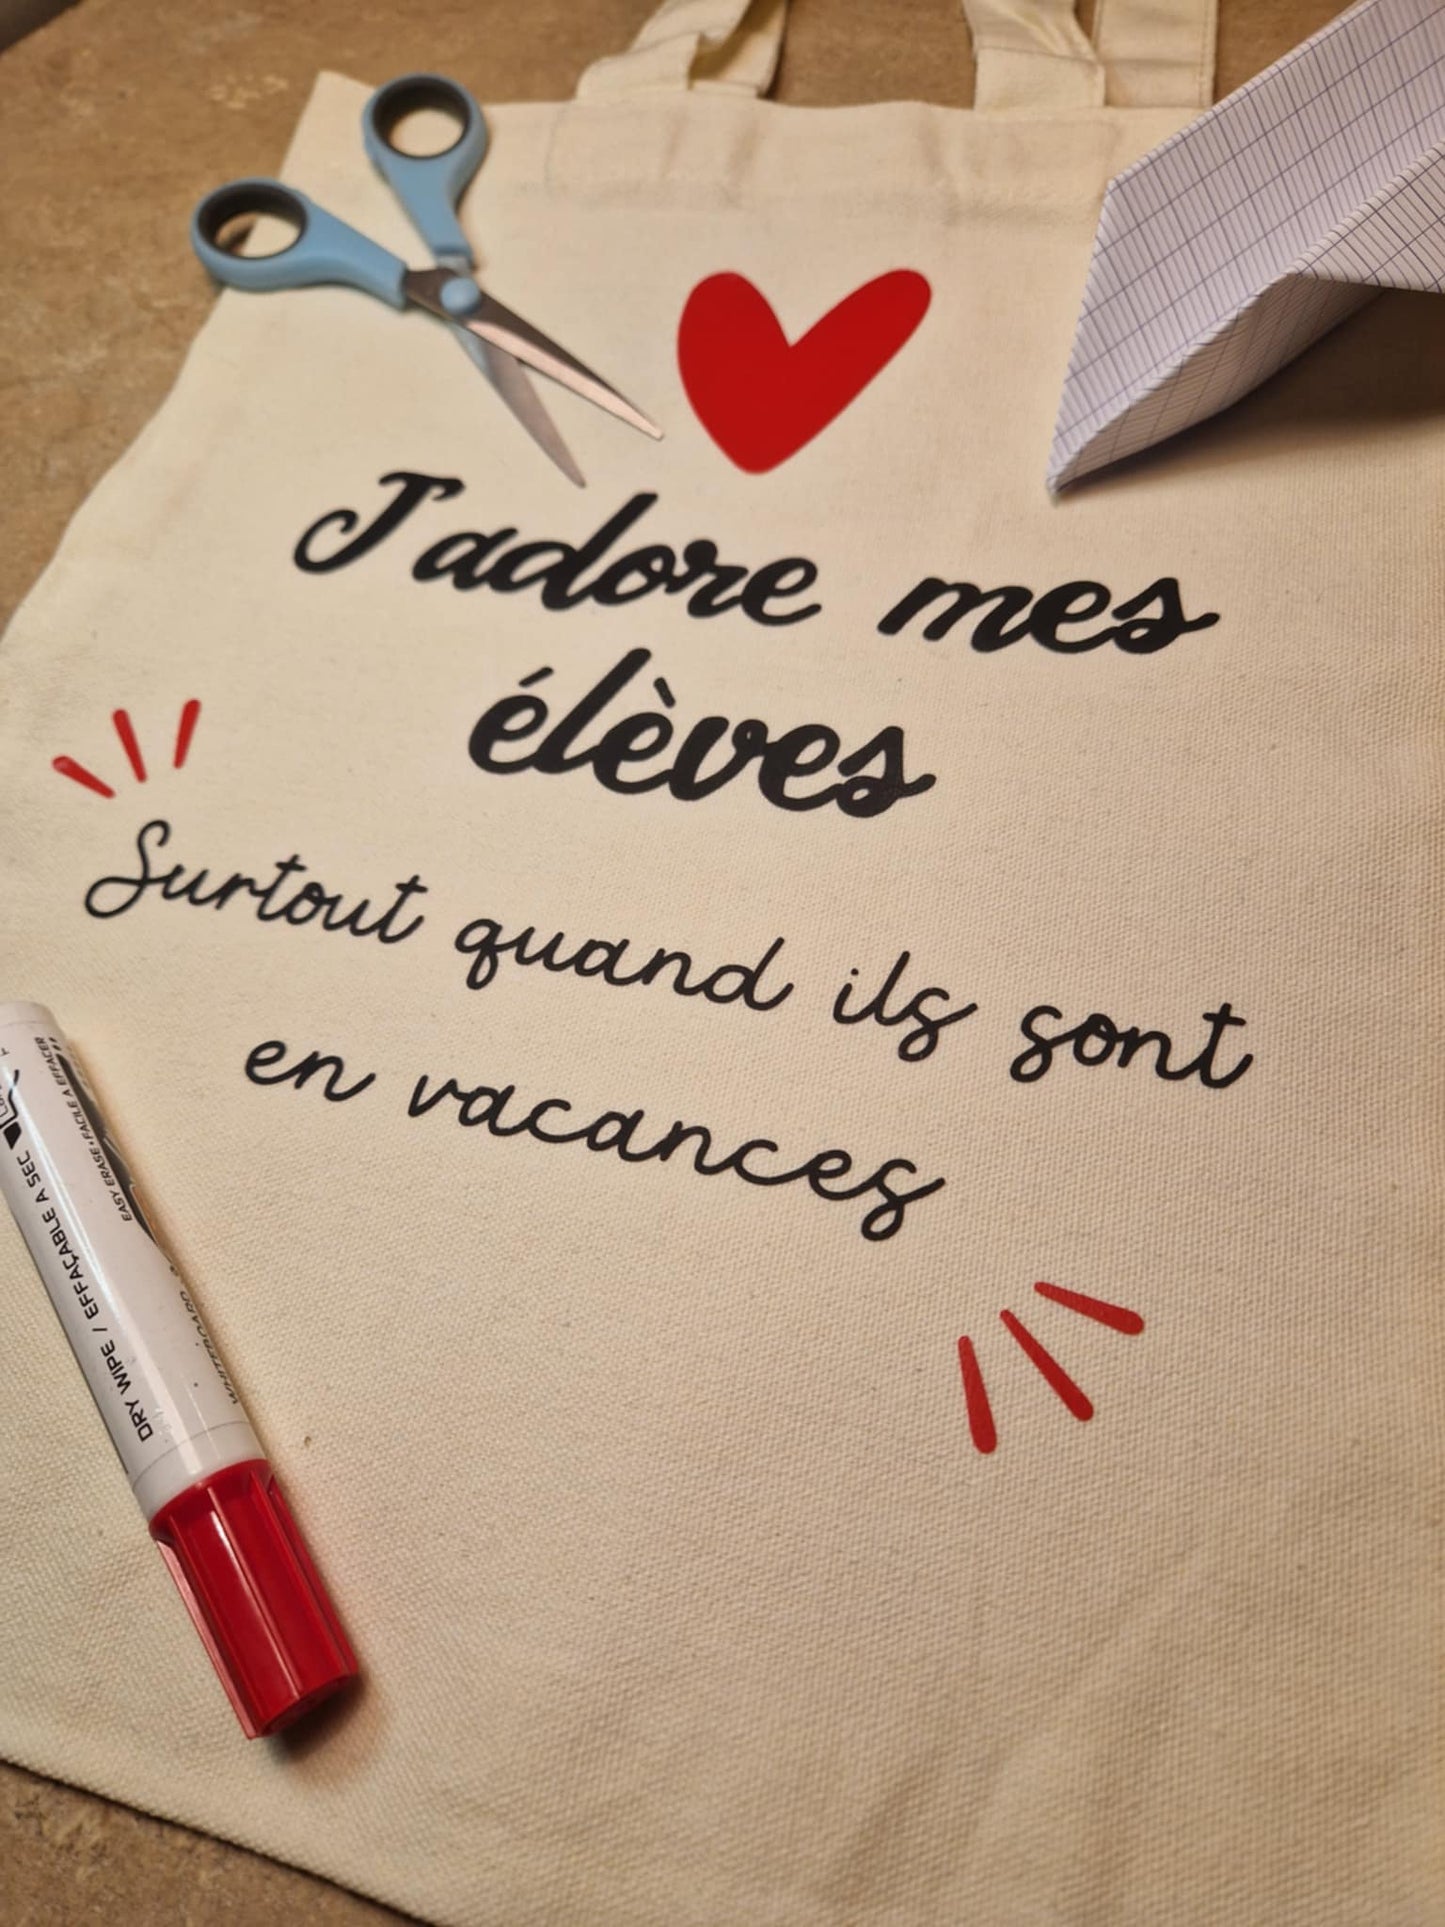 J'adore mes
élèves
Surtout quand ils sont
en vacances
DRY WIPE / EFFAÇABLE A SEC
EASY ERASE • FACILE A EFFACER
WHITEBOARD